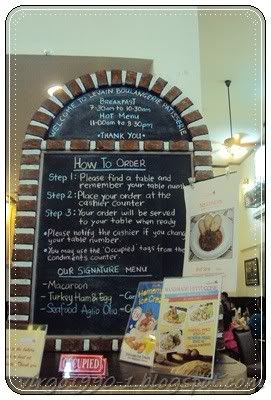 WELCOME TO LEVAIN BOULANGERIE PATISSERIE
BREAKFAST
7-30am to 10-30am
HOT MENU
11-00am to 9-30pm
•THANK YOU•
HOW TO ORDER
Step 1: Please find a table and
remember your table number
Step 2: Place your order at the
cashier counter
Step 3: Your order will be served
to your table when ready
•Please notify the cashier if you change
your table number.
•You may use the 'Occupied' tags from the
condiments counter.
OUR SIGNATURE MENU
-Macaroon
-Turkey Ham & Egg
-Seafood Aglio Olio
Homemade
Ice Cream
OCCUPIED